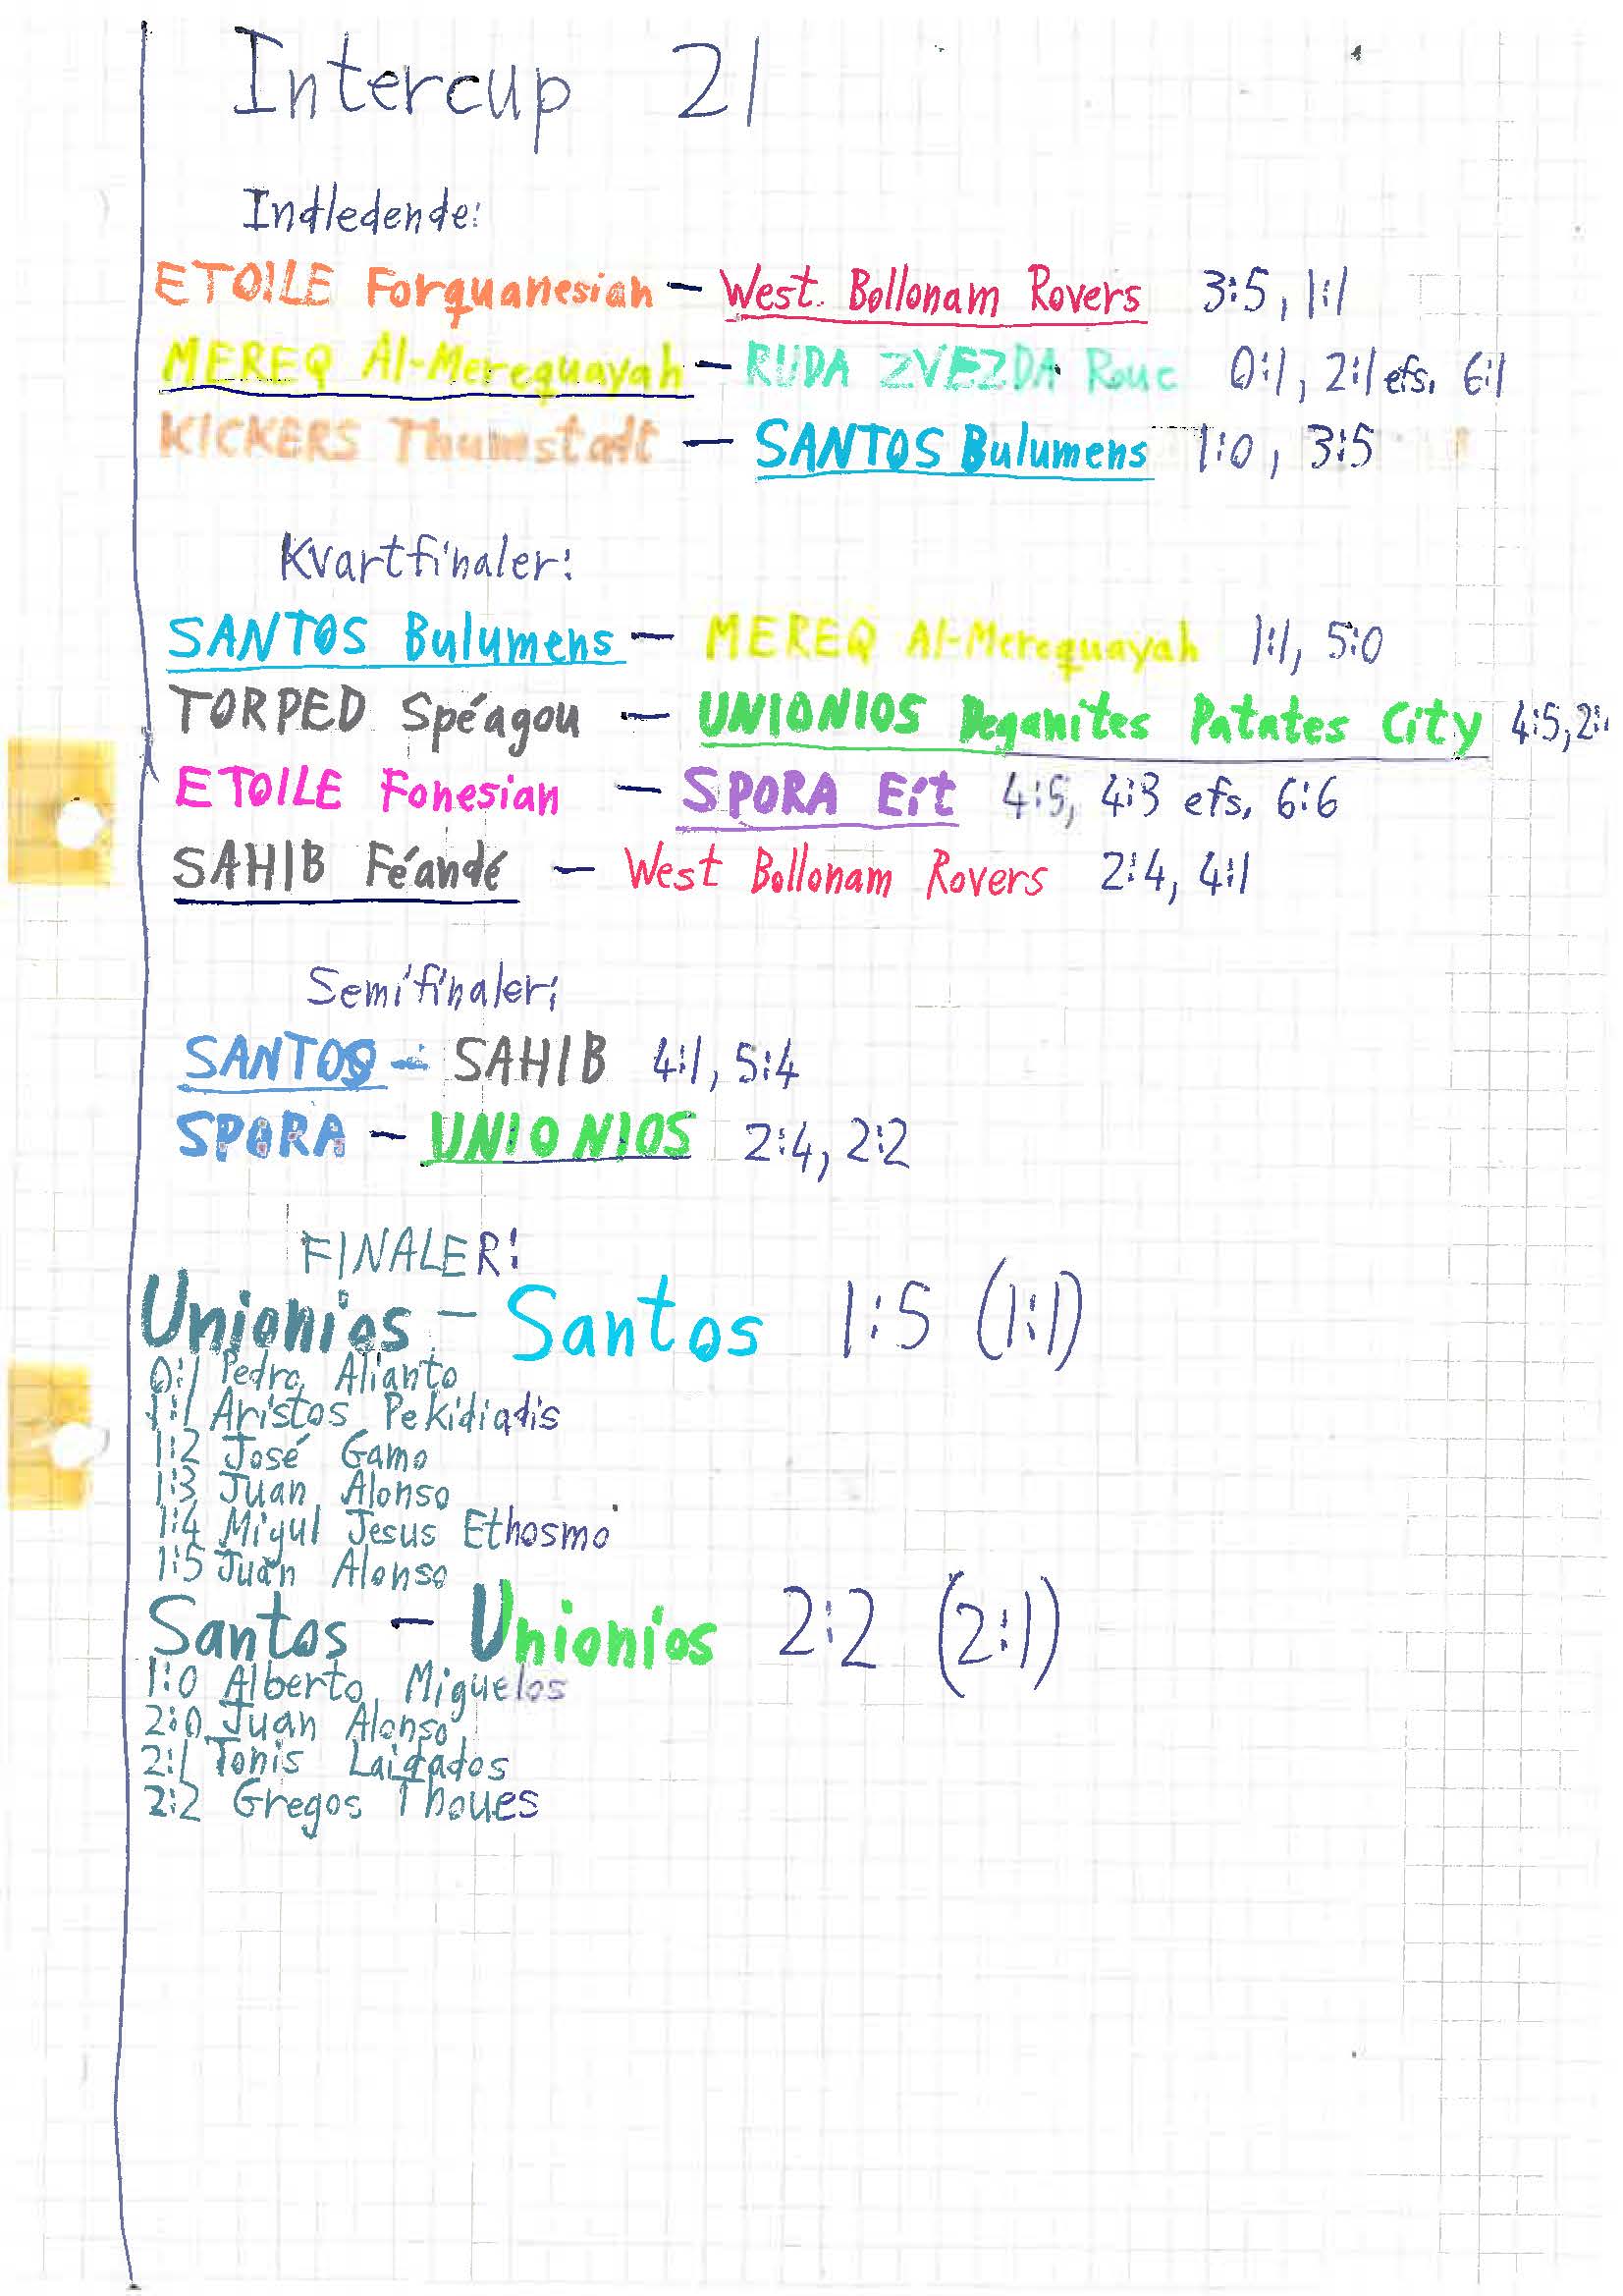 Intercup 21
Indledende:
ETOILE Forquanesian – West Bollonam Rovers 3:5, 1:1
MEREQ Al-Merequayah – RUDA ZVEZDA Rouc 0:1, 2:1 efs. 6:1
KICKERS Thumstadt – SANTOS Bulumens 1:0, 3:5
Kvartfinaler:
SANTOS Bulumens – MEREQ Al-Merequayah 1:1, 5:0
TORPED Spéagou – UNIONIOS Deganites Patates City 4:5, 2:
ETOILE Fonesian – SPORA Eit 4:5, 4:3 efs. 6:6
SAHIB Féandé – West Bollonam Rovers 2:4, 4:1
Semifinaler:
SANTOS – SAHIB 4:1, 5:4
SPORA – UNIONIOS 2:4, 2:2
FINALER:
Unionios – Santos 1:5 (1:1)
0:1 Pedro Alianto
1:1 Aristos Pekidiadis
1:2 José Gamo
1:3 Juan Alonso
1:4 Migul Jesus Ethosmo
1:5 Juan Alonso
Santos – Unionios 2:2 (2:1)
1:0 Alberto Miguelos
2:0 Juan Alonso
2:1 Tonis Laidados
2:2 Gregos Thoues